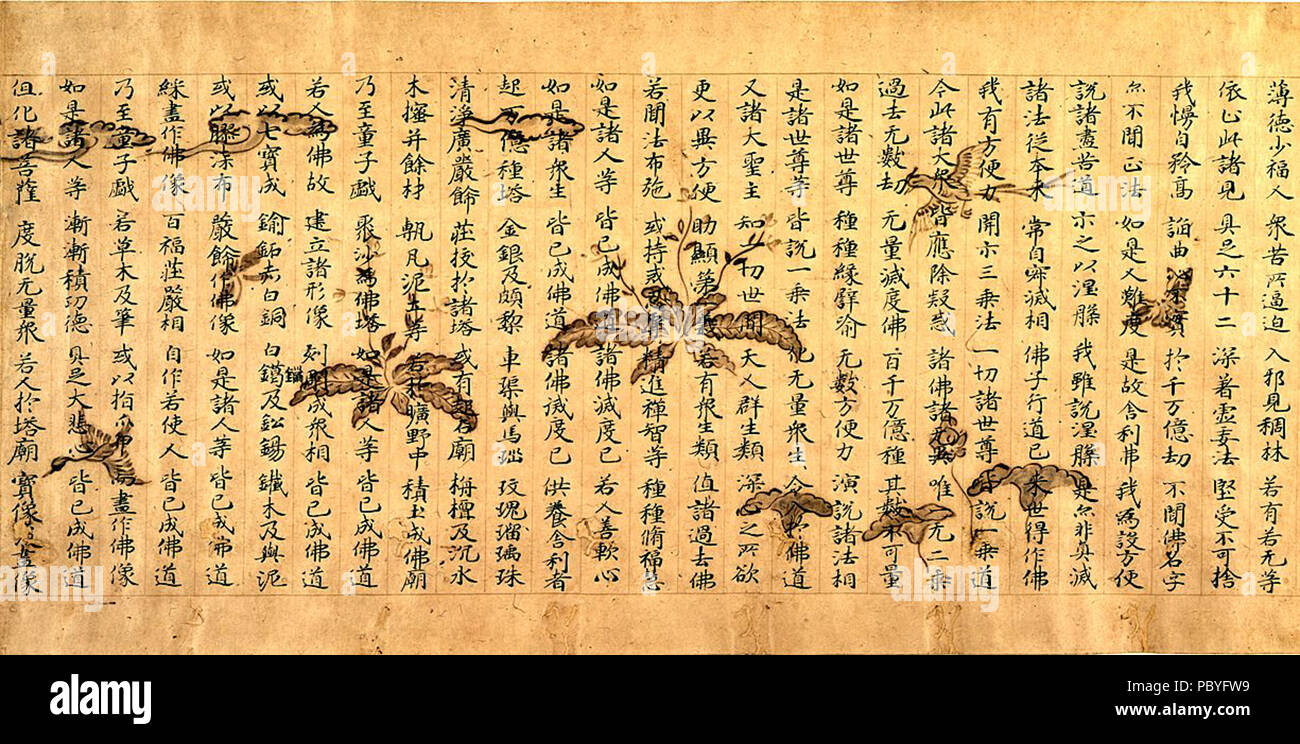 薄德少福人 衆苦所逼迫 入邪見稠林 若有若无等
依止此諸見 具足六十二 深著虛妄法 堅受不可捨
我慢自矜高 諂曲心不實 於千万億劫 不聞佛名字
亦不聞正法 如是人難度 是故舍利弗 我為設方便
說諸盡苦道 示之以涅槃 我雖說涅槃 是亦非真滅
諸法從本來 常自寂滅相 佛子行道已 来世得作佛
我有方便力 開示三乘法 一切諸世尊 皆說一乘道
今此諸大衆 皆應除疑惑 諸佛語无異 唯一无二乘
過去无數劫 无量滅度佛 百千万億種 其數不可量
如是諸世尊 種種緣譬喻 无數方便力 演說諸法相
是諸世尊等 皆說一乘法 化无量衆生 令入於佛道
又諸大聖主 知一切世間 天人群生類 深心之所欲
更以異方便 助顯第一義 若有衆生類 值諸過去佛
若聞法布施 或持戒忍辱 精進禪智等 種種脩福慧
如是諸人等 皆已成佛道 諸佛滅度已 若人善軟心
如是諸衆生 皆已成佛道 諸佛滅度已 供養舍利者
起万億種塔 金銀及頗黎 車渠與馬瑙 玫瑰瑠璃珠
清淨廣嚴飾 莊挍於諸塔 或有起石廟 栴檀及沉水
木櫁并餘材 甎瓦泥土等 若於曠野中 積土成佛廟
乃至童子戲 聚沙為佛塔 如是諸人等 皆已成佛道
若人為佛故 建立諸形像 刻彫成衆相 皆已成佛道
或以七寶成 鍮鉐赤白銅 白鑞及鈆錫 鐵木及與泥
或以膠漆布 嚴飾作佛像 如是諸人等 皆已成佛道
綵畫作佛像 百福莊嚴相 自作若使人 皆已成佛道
乃至童子戲 若草木及筆 或以指爪甲 而畫作佛像
如是諸人等 漸漸積功德 具足大悲心 皆已成佛道
但化諸菩薩 度脫无量衆 若人於塔廟 寶像及畫像
alamy
Image ID: PBYFW9
www.alamy.com